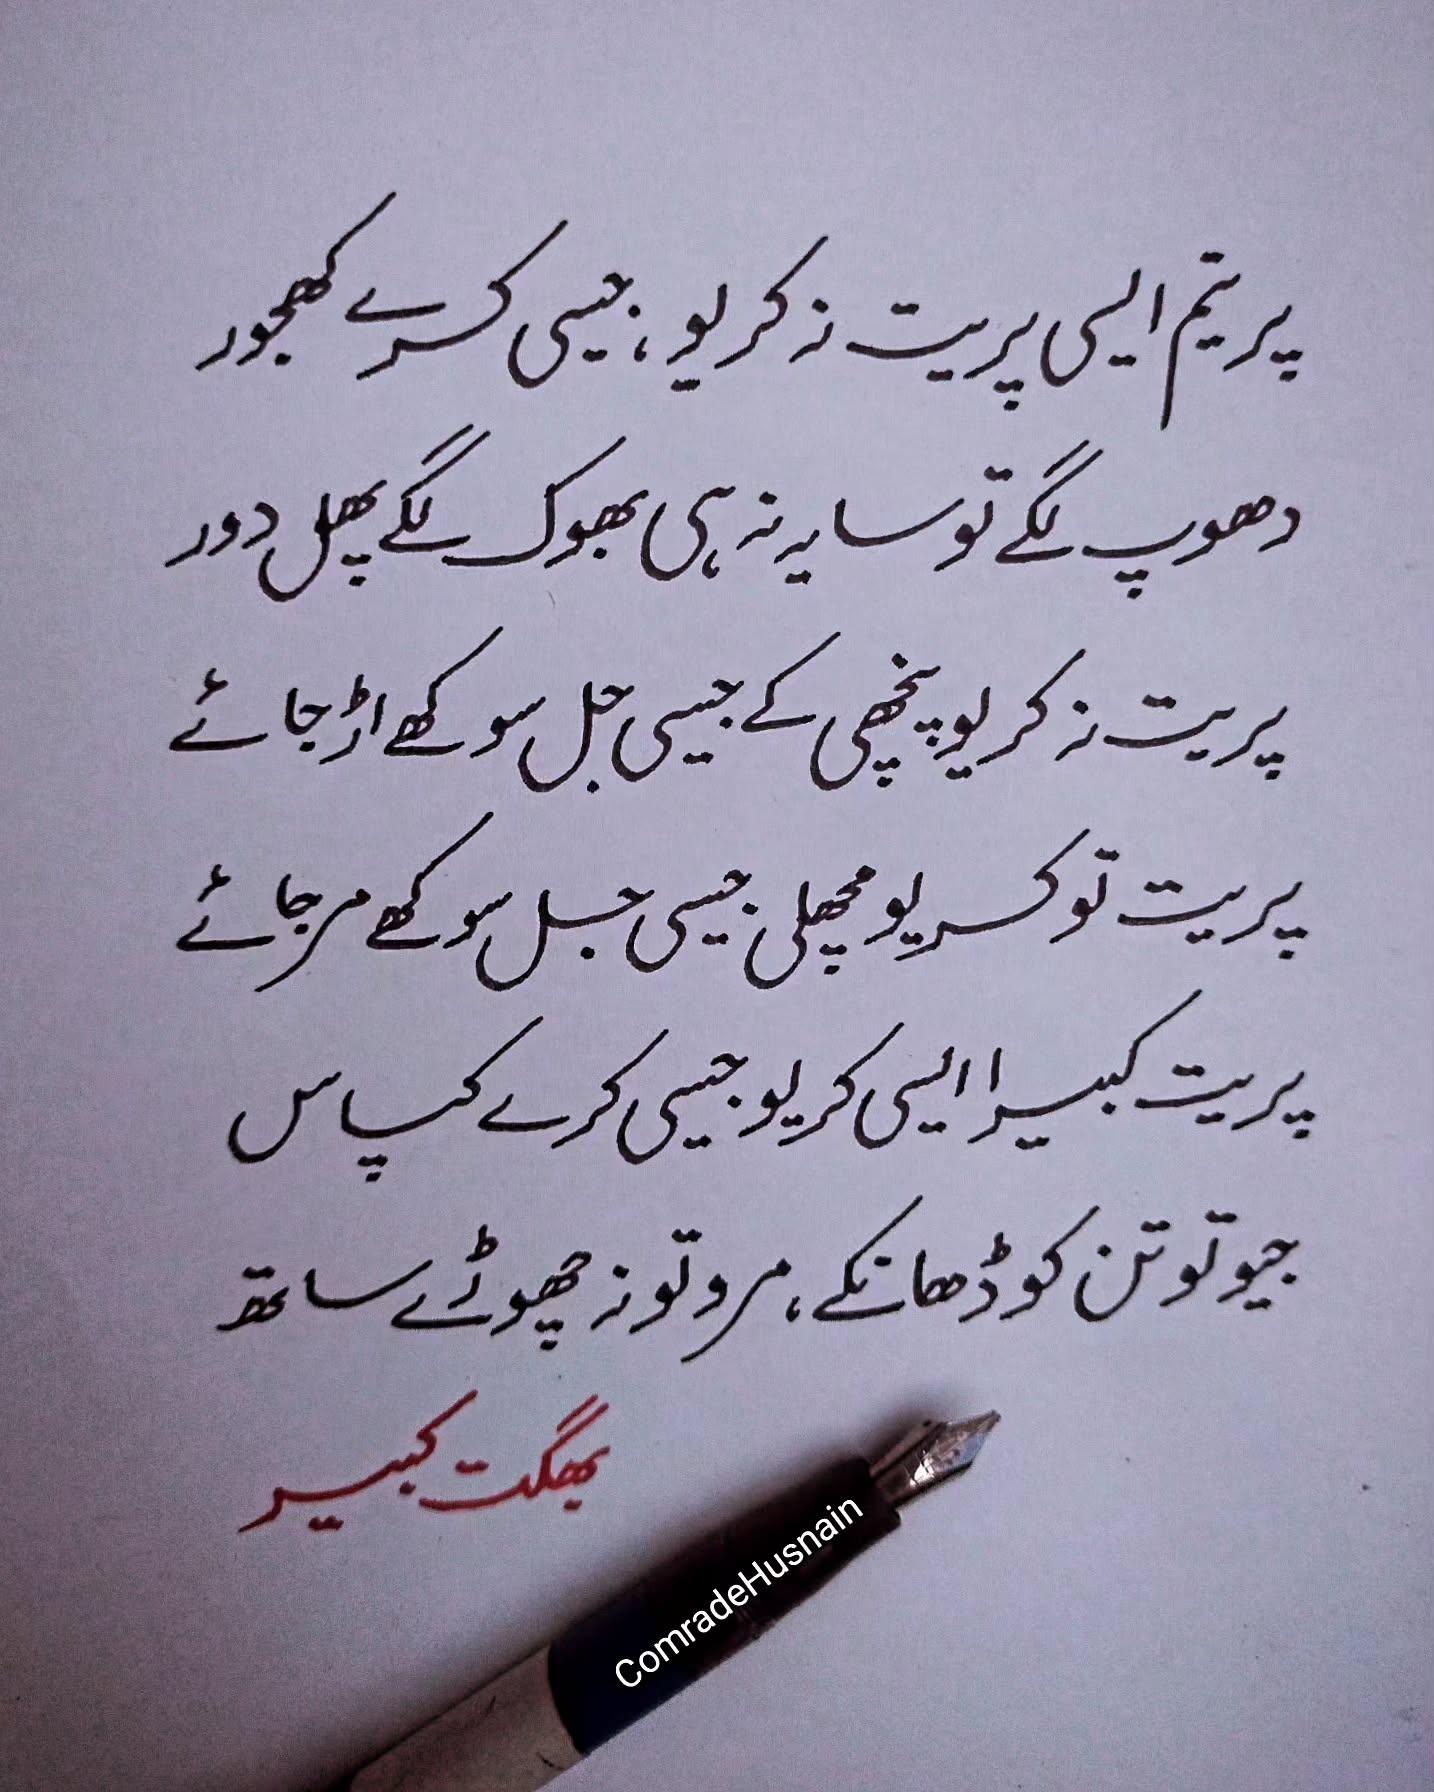 پریتم ایسی پریت نہ کریو، جیسی کرے کھجور
دھوپ لگے تو سایہ نہ ہی بھوک لگے پھل دور
پریت نہ کریو پنچھی کے جیسی جل سوکھے اڑ جائے
پریت تو کریو مچھلی جیسی جل سوکھے مر جائے
پریت کبیرا ایسی کریو جیسی کرے کپاس
جیو تو تن کو ڈھانکے، مرو تو نہ چھوڑے ساتھ
بھگت کبیر
ComradeHusnain